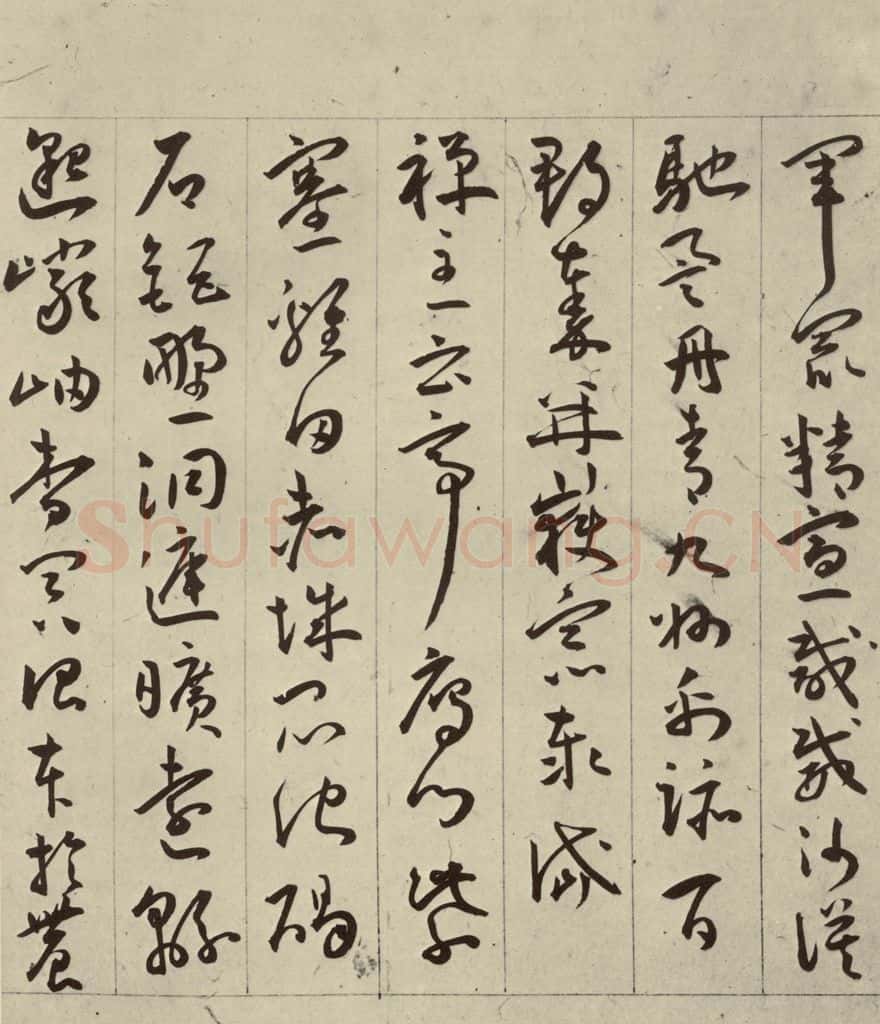 軍最精宣威威沙漠
馳譽丹青九州禹跡百
郡秦并嶽宗泰岱
禪主云亭雁門紫
塞雞田赤城昆池碣
石鉅野洞庭曠遠緜
邈巖岫杳冥治本於農
Shufawang.CN